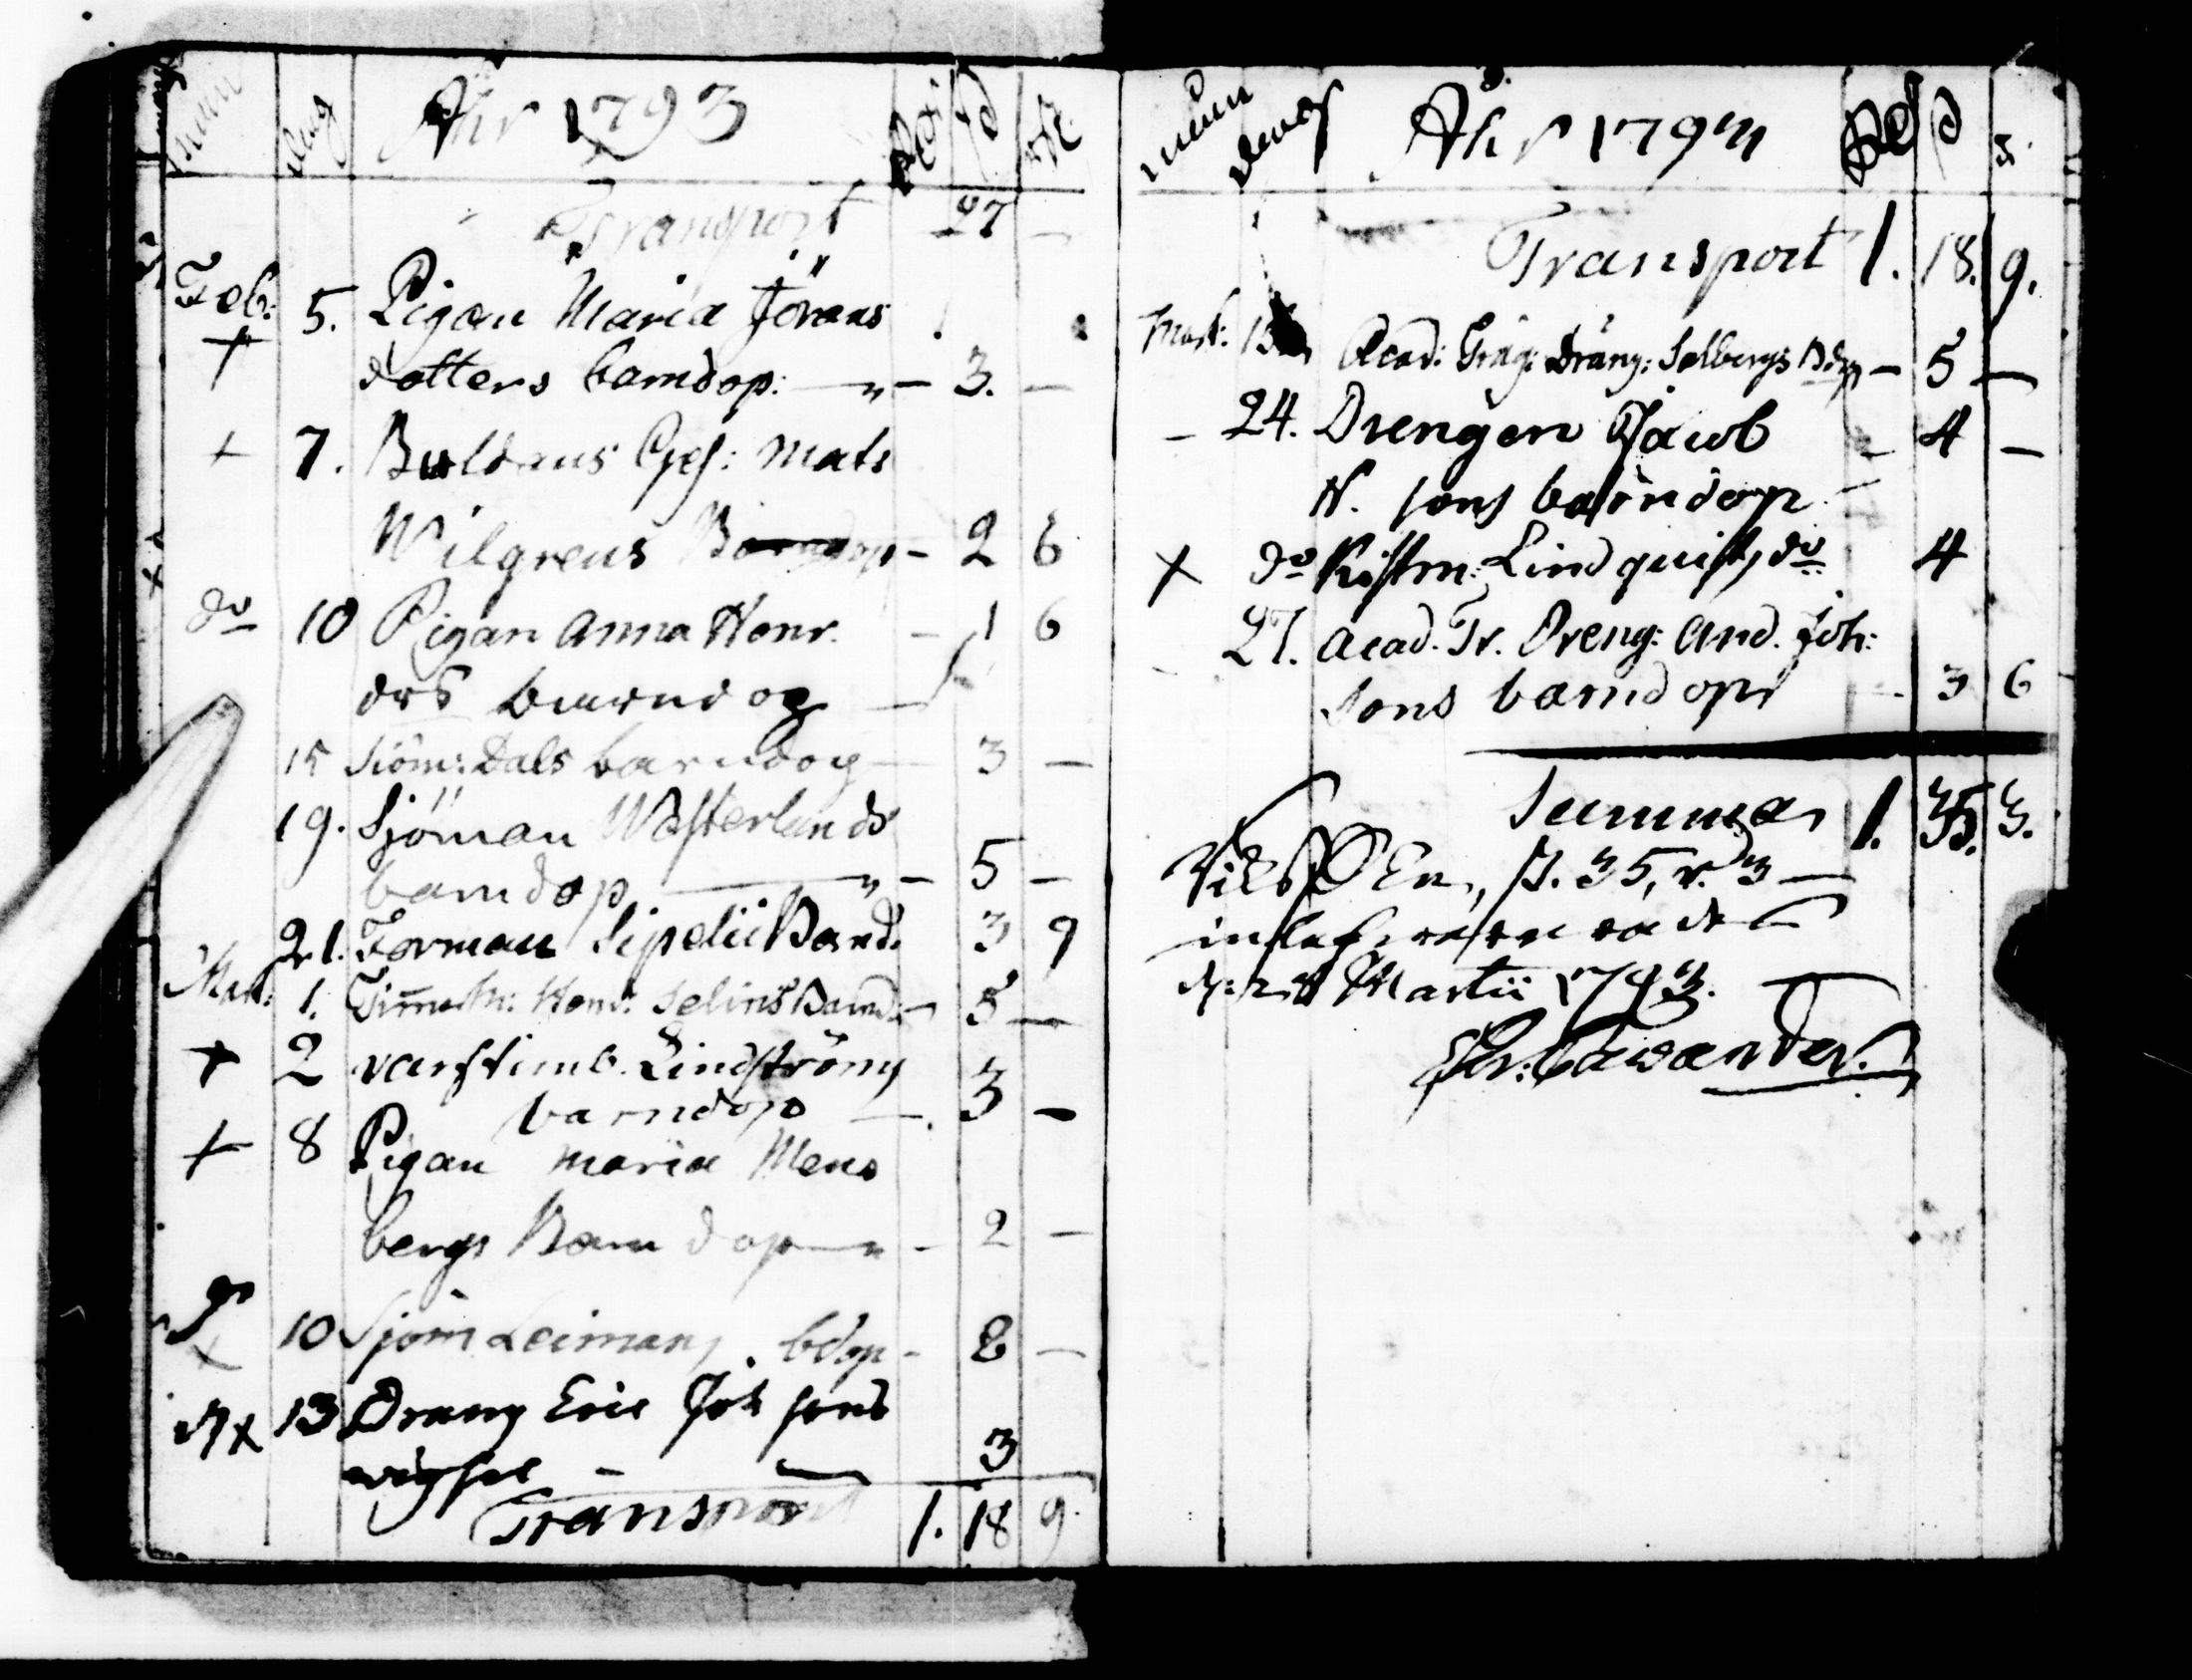 Åhr 1793
Transport 27 —
Feb: 5. Pigan Maria Jörans
+ dotters barndop: — „ — 3. —
+ 7. Buldans Ges: Mats
Wilgrens Barndop — 2 6
do 10 Pigan Anna Henr. — 1 6
drs barndop —
15 Siöm: Dals barndop — 3 —
19. Sjöman Wästerlunds
barndop — „ — 5 —
21. Forman Sipelii Barnd. 3 9
Mart: 1. Timerm: Henr: Selins Barnd: — 5 —
+ 2 varfstimb. Lindströms
barndop — 3 —
+ 8 Pigan Maria Mens
bergs Barndop — „ — 2 —
+ 10 Sjöm Leimans bdop — 8 —
+ 13 Dräng Eric Joh sons
wigsel — 3
Transport 1. 18 9.
Åhr 1793
Transport 1. 18. 9.
Mart: 15 Acad: Träg: dräng: Salbergs Bdop — 5 —
— 24. Drengen Jacob — 4 —
N. sons barndop —
+ do Kistm: Lindquists do 4
27. Acad. Tr. Dreng: And. Joh:
sons barndop — 3 6
Summa 1. 35. 3.
35, r. 3 —
Martii 1793.